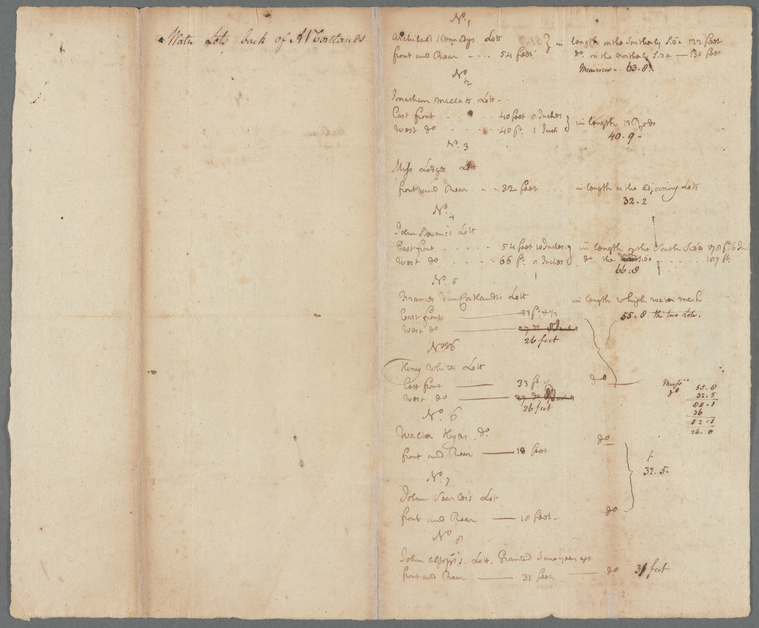 Water Lots back of A V Cortlands
No. 1
Archibald Kennedys Lott
in length on the Southerly Side 122 feet
front and Rear - - . . 54 feet
do. on the Northerly Side — 130 feet
63.8
No. 2
Jonathan Mallets Lott -
East front . . . 40 feet 0 Inches
West do . . . 40 ft. 1 Inch
in length
40.9 -
No. 3
Miss Lodges Lott
front and Rear . . 32 feet
in length as the adjoining Lots
32.2
No. 4
John Lott
East front . . . 54 feet 10 Inches
in length on the South Side
West do . . . 66 ft. 0 Inches
do the . . . 107 ft.
66.8
No. 5
Lott
in length to high water mark
East front — 33 ft.
55.8 the two lots.
West do —
26 feet
No. 6
Henry Whites Lott
East front — 33 ft.
do
West do —
26 feet
55.8
32.5
88.1
36
52.1
26.0
No. 6
Walter do.
do
front and Rear — 18 feet
32.5.
No. 7
John Lott
front and Rear — 10 feet -
do
No. 8
John Alsops Lott. Granted some years ago
front and Rear — 31 feet — do 31 feet